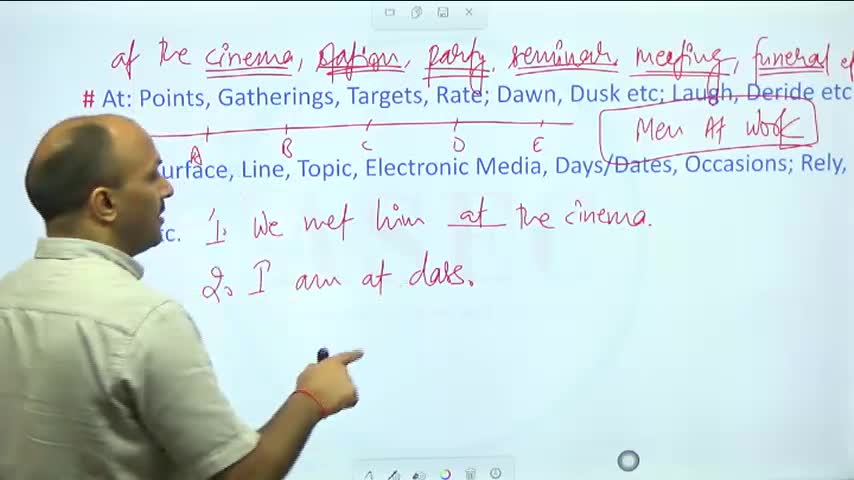 at the cinema, station, party, seminar, meeting, funeral et
# At: Points, Gatherings, Targets, Rate; Dawn, Dusk etc; Laugh, Deride etc
Men At Work
A B C D E
urface, Line, Topic, Electronic Media, Days/Dates, Occasions; Rely,
c. 1. We met him at the cinema.
2. I am at dars.